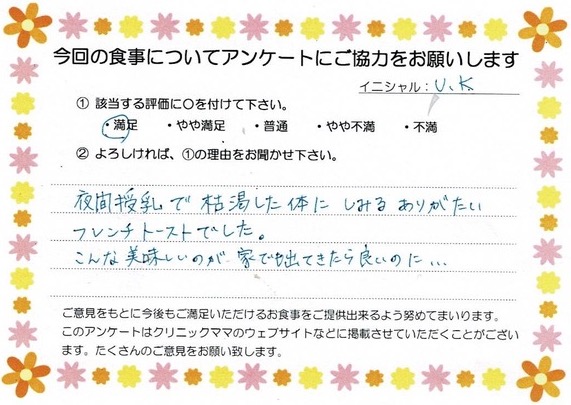 今回の食事についてアンケートにご協力をお願いします
イニシャル：U.K
① 該当する評価に○を付けて下さい。
・満足 ・やや満足 ・普通 ・やや不満 ・不満
② よろしければ、①の理由をお聞かせ下さい。
夜間授乳で枯渇した体にしみるありがたい
フレンチトーストでした。
こんな美味しいのが家でも出てきたら良いのに…
ご意見をもとに今後もご満足いただけるお食事をご提供出来るよう努めてまいります。
このアンケートはクリニックママのウェブサイトなどに掲載させていただくことがござい
ます。たくさんのご意見をお願い致します。